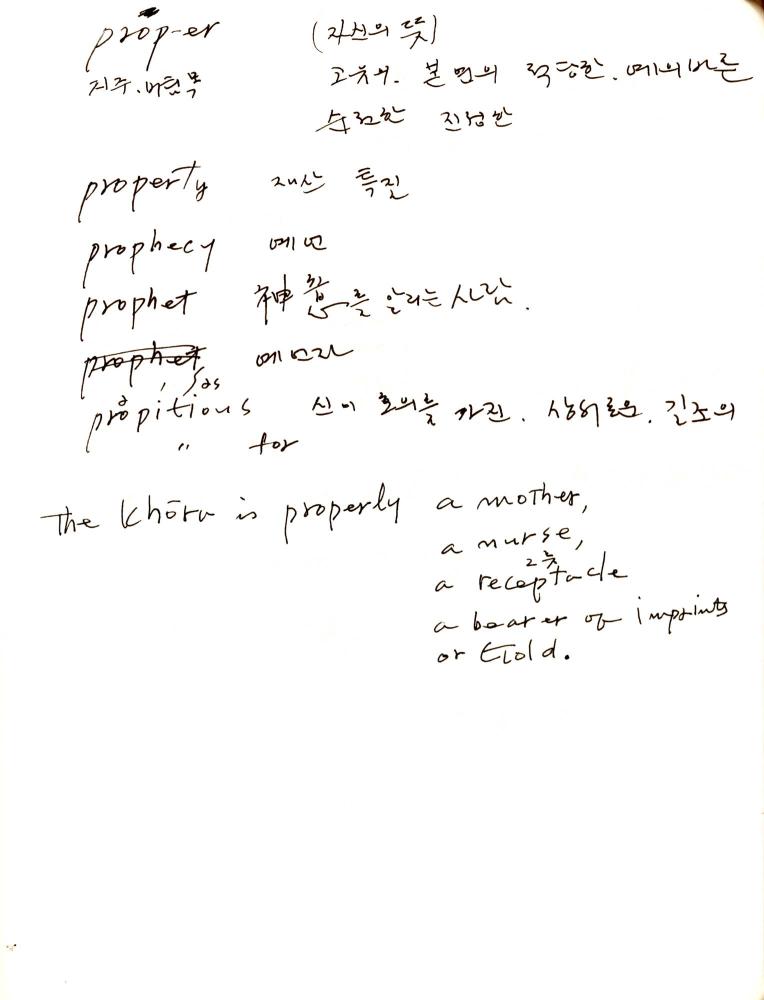 prop-er (자신의 뜻)
지주.버팀목 고유의. 본연의 적당한. 예의바른
순전한 진정한
property 재산 특질
prophecy 예언
prophet 神意를 알리는 사람.
예언자
propitious 신이 호의를 가진. 상서로운. 길조의
〃 for
The Khōra is properly a mother,
a nurse,
그릇
a receptacle
a bearer of imprints
or Gold.